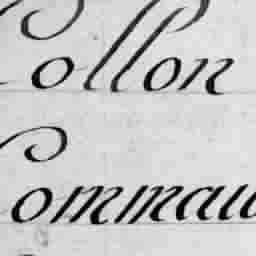 Collon
Commau